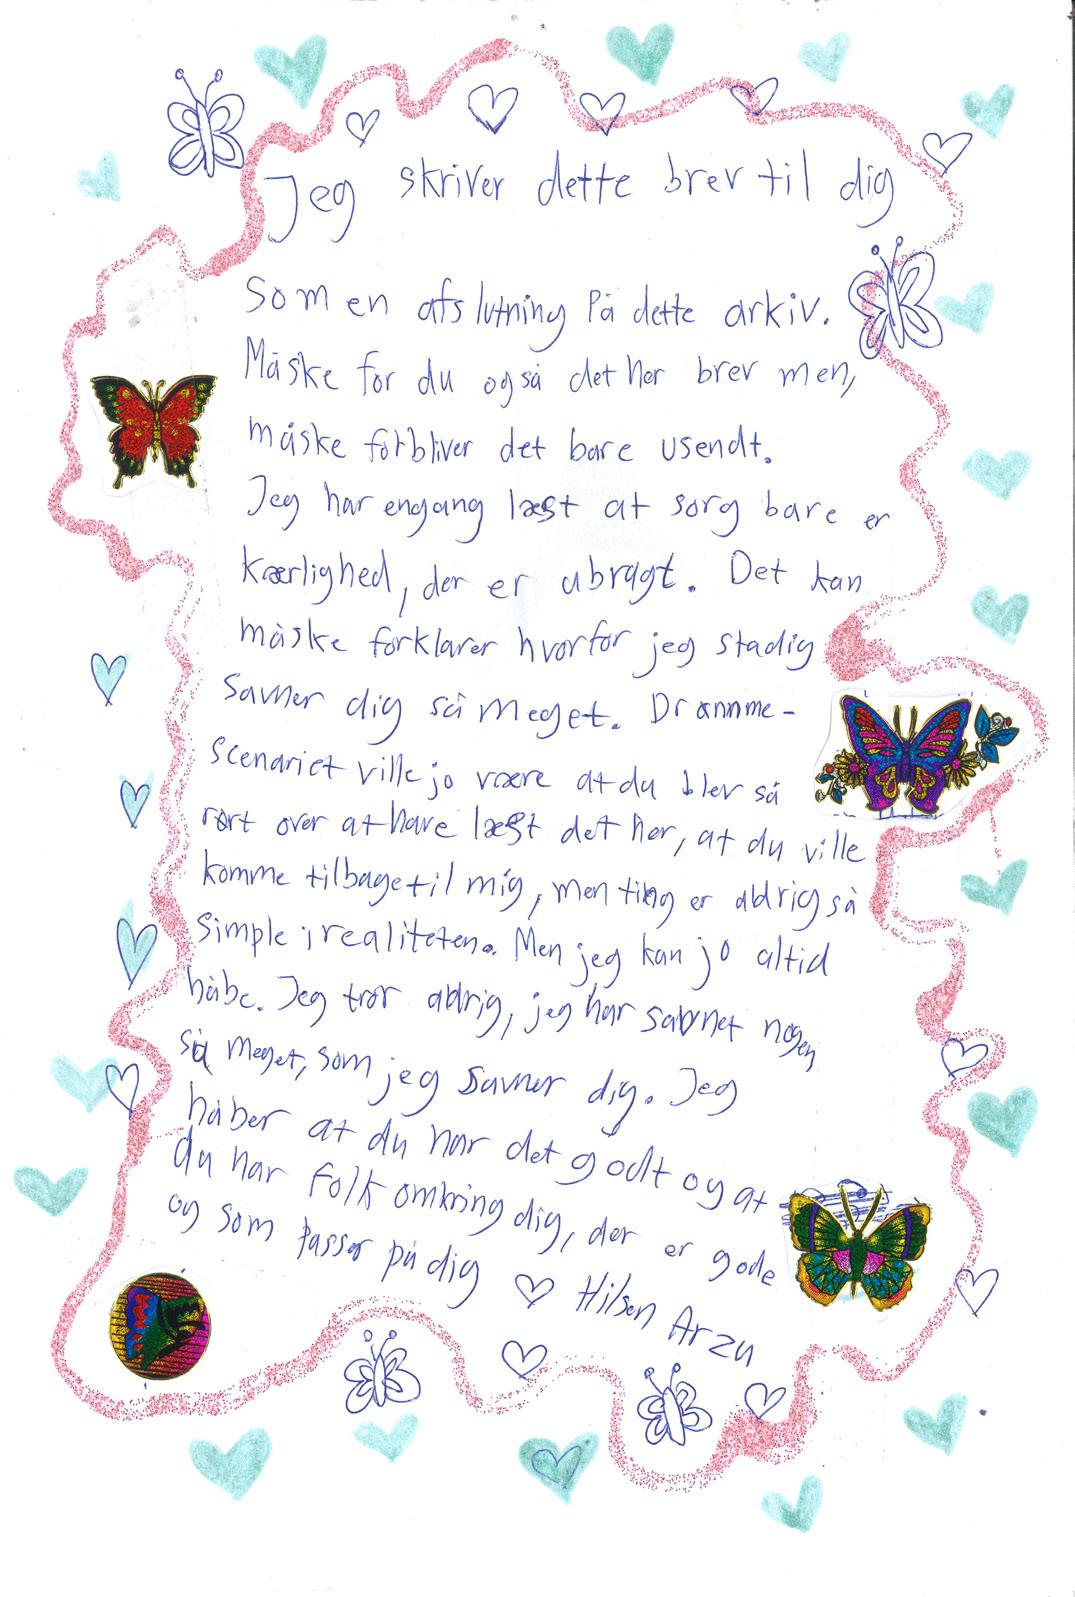 Jeg skriver dette brev til dig
som en afslutning på dette arkiv.
Måske får du også det her brev men,
måske forbliver det bare usendt.
Jeg har engang læst at sorg bare er
kærlighed, der er ubragt. Det kan
måske forklarer hvorfor jeg stadig
savner dig så meget. Drømme-
scenariet ville jo være at du blev så
rørt over at have læst det her, at du ville
komme tilbage til mig, men ting er aldrig så
simple i realiteten. Men jeg kan jo altid
håbe. Jeg tror aldrig, jeg har savnet nogen
så meget, som jeg savner dig. Jeg
håber at du har det godt og at
du har folk omkring dig, der er gode
og som passer på dig ♡ Hilsen Arzu